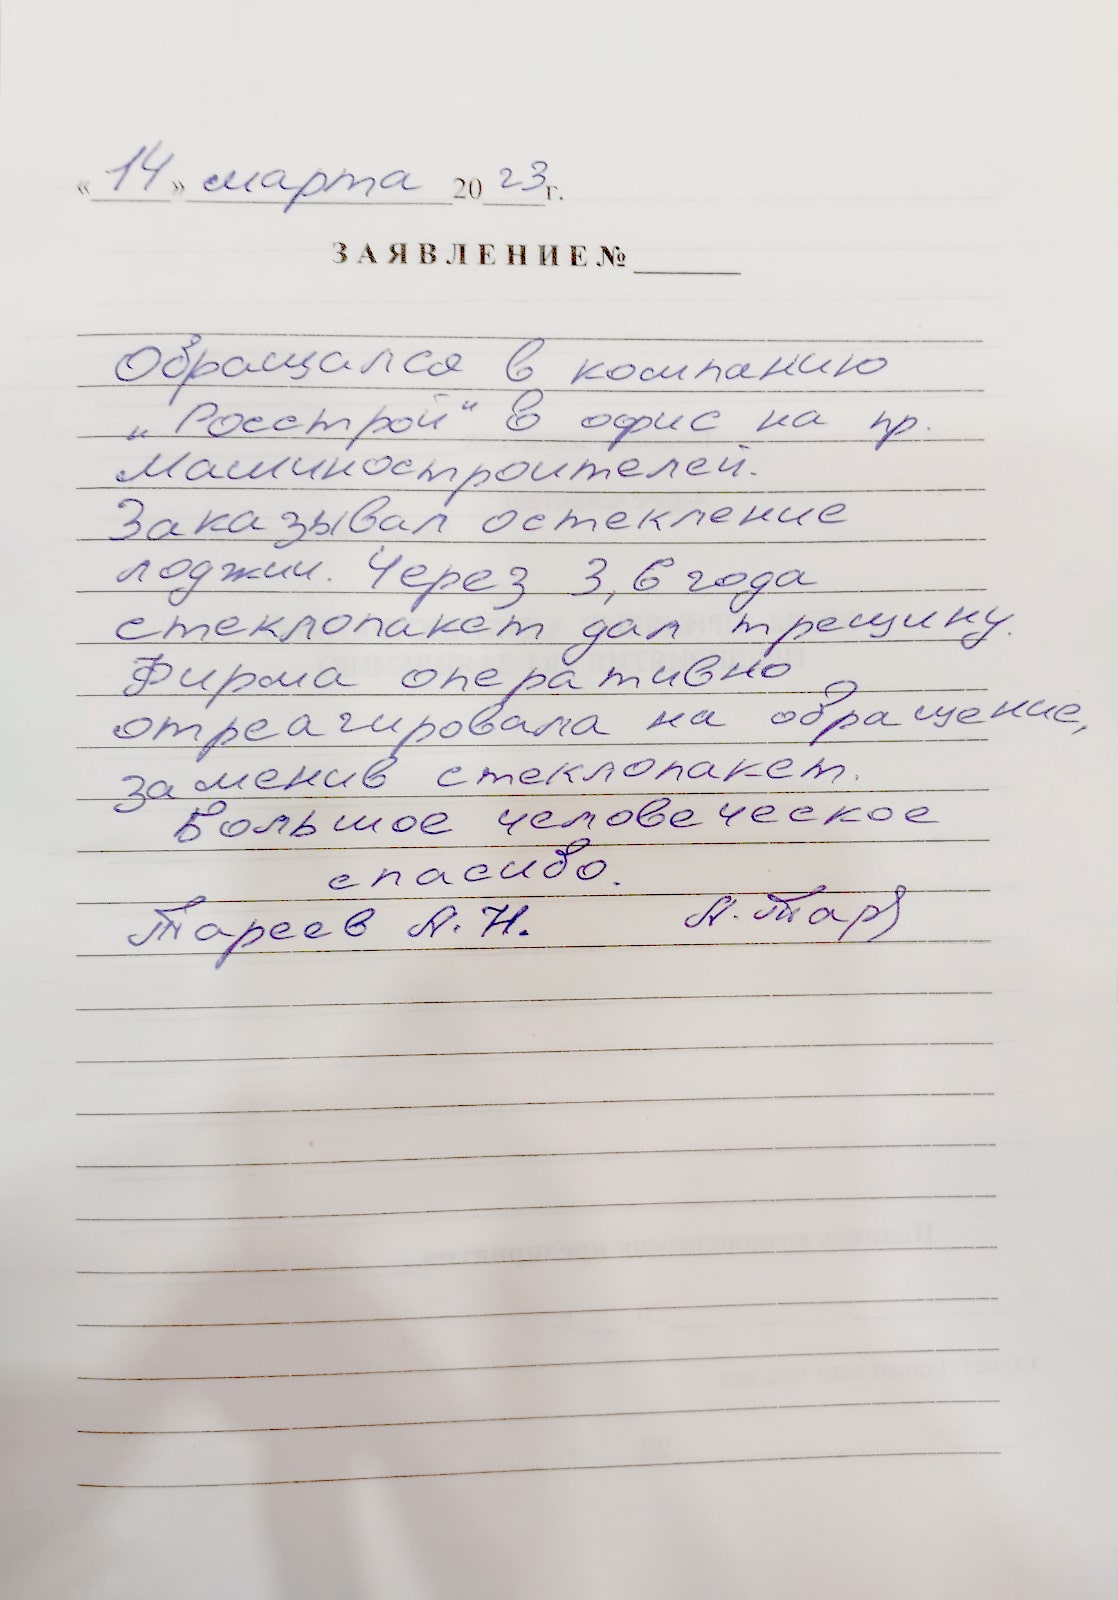 «14» марта 2023г.
ЗАЯВЛЕНИЕ№
Обращался в компанию
„Росстрой“ в офис на пр.
Машиностроителей.
Заказывал остекление
лоджии. Через 3,6 года
стеклопакет дал трещину.
Фирма оперативно
отреагировала на обращение,
заменив стеклопакет.
Большое человеческое
спасибо.
Тареев А.Н. А.Тар